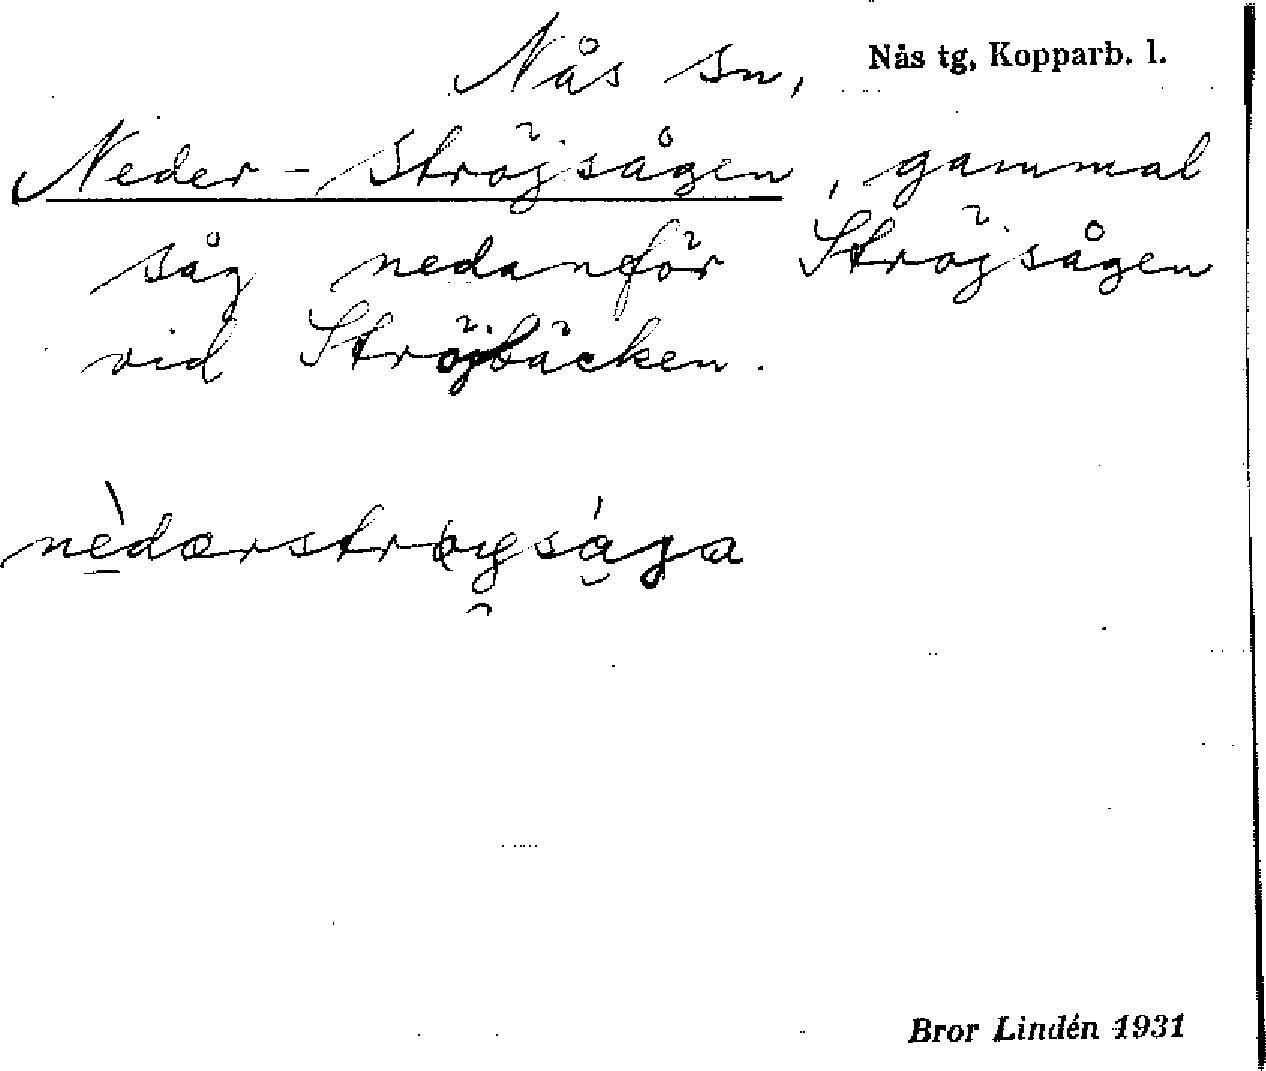 Nås sn, Nås tg, Kopparb. l.
Neder-Ströjsågen, gammal
såg nedanför Ströjsågen
vid Ströjbäcken.
Bror Lindén 1931